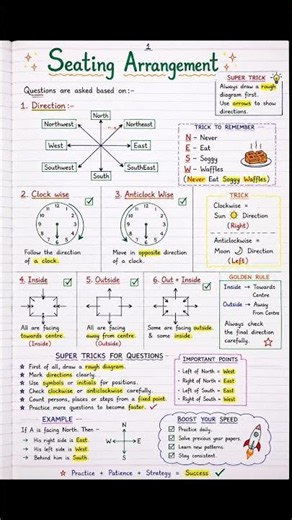 1
Seating Arrangement
SUPER TRICK
Always draw a rough
diagram first.
Use arrows to show
directions.
Questions are asked based on :-
1. Direction :-
North
Northwest
Northeast
West
East
Southwest
SouthEast
South
TRICK TO REMEMBER
N - Never
E - Eat
S - Soggy
W - Waffles
(Never Eat Soggy Waffles)
2. Clock wise
Follow the direction
of a clock.
3. Anticlock Wise
Move in opposite direction
of a clock.
TRICK
Clockwise =
Sun Direction
(Right)
Anticlockwise =
Moon Direction
(Left)
4. Inside
All are facing
towards centre.
(Inside)
5. Outside
All are facing
away from centre.
(Outside)
6. Out + Inside
Some are facing outside,
& some inside.
GOLDEN RULE
Inside → Towards
Centre
Outside → Away
From Centre
Always check
the final direction
carefully.
SUPER TRICKS FOR QUESTIONS -
First of all, draw a rough diagram.
Mark directions clearly.
Use symbols or initials for positions.
Check clockwise or anticlockwise carefully.
Count persons, places or steps from a fixed point.
Practice more questions to become faster.
IMPORTANT POINTS
Left of North = West
Right of North = East
Left of South = East
Right of South = West
EXAMPLE -
If A is facing North. Then -
→ His right side is East.
→ His left side is West.
→ Behind him is South.
N
W E
S
BOOST YOUR SPEED
Practice daily.
Solve previous year papers.
Learn new patterns.
Stay consistent.
Practice + Patience + Strategy = Success